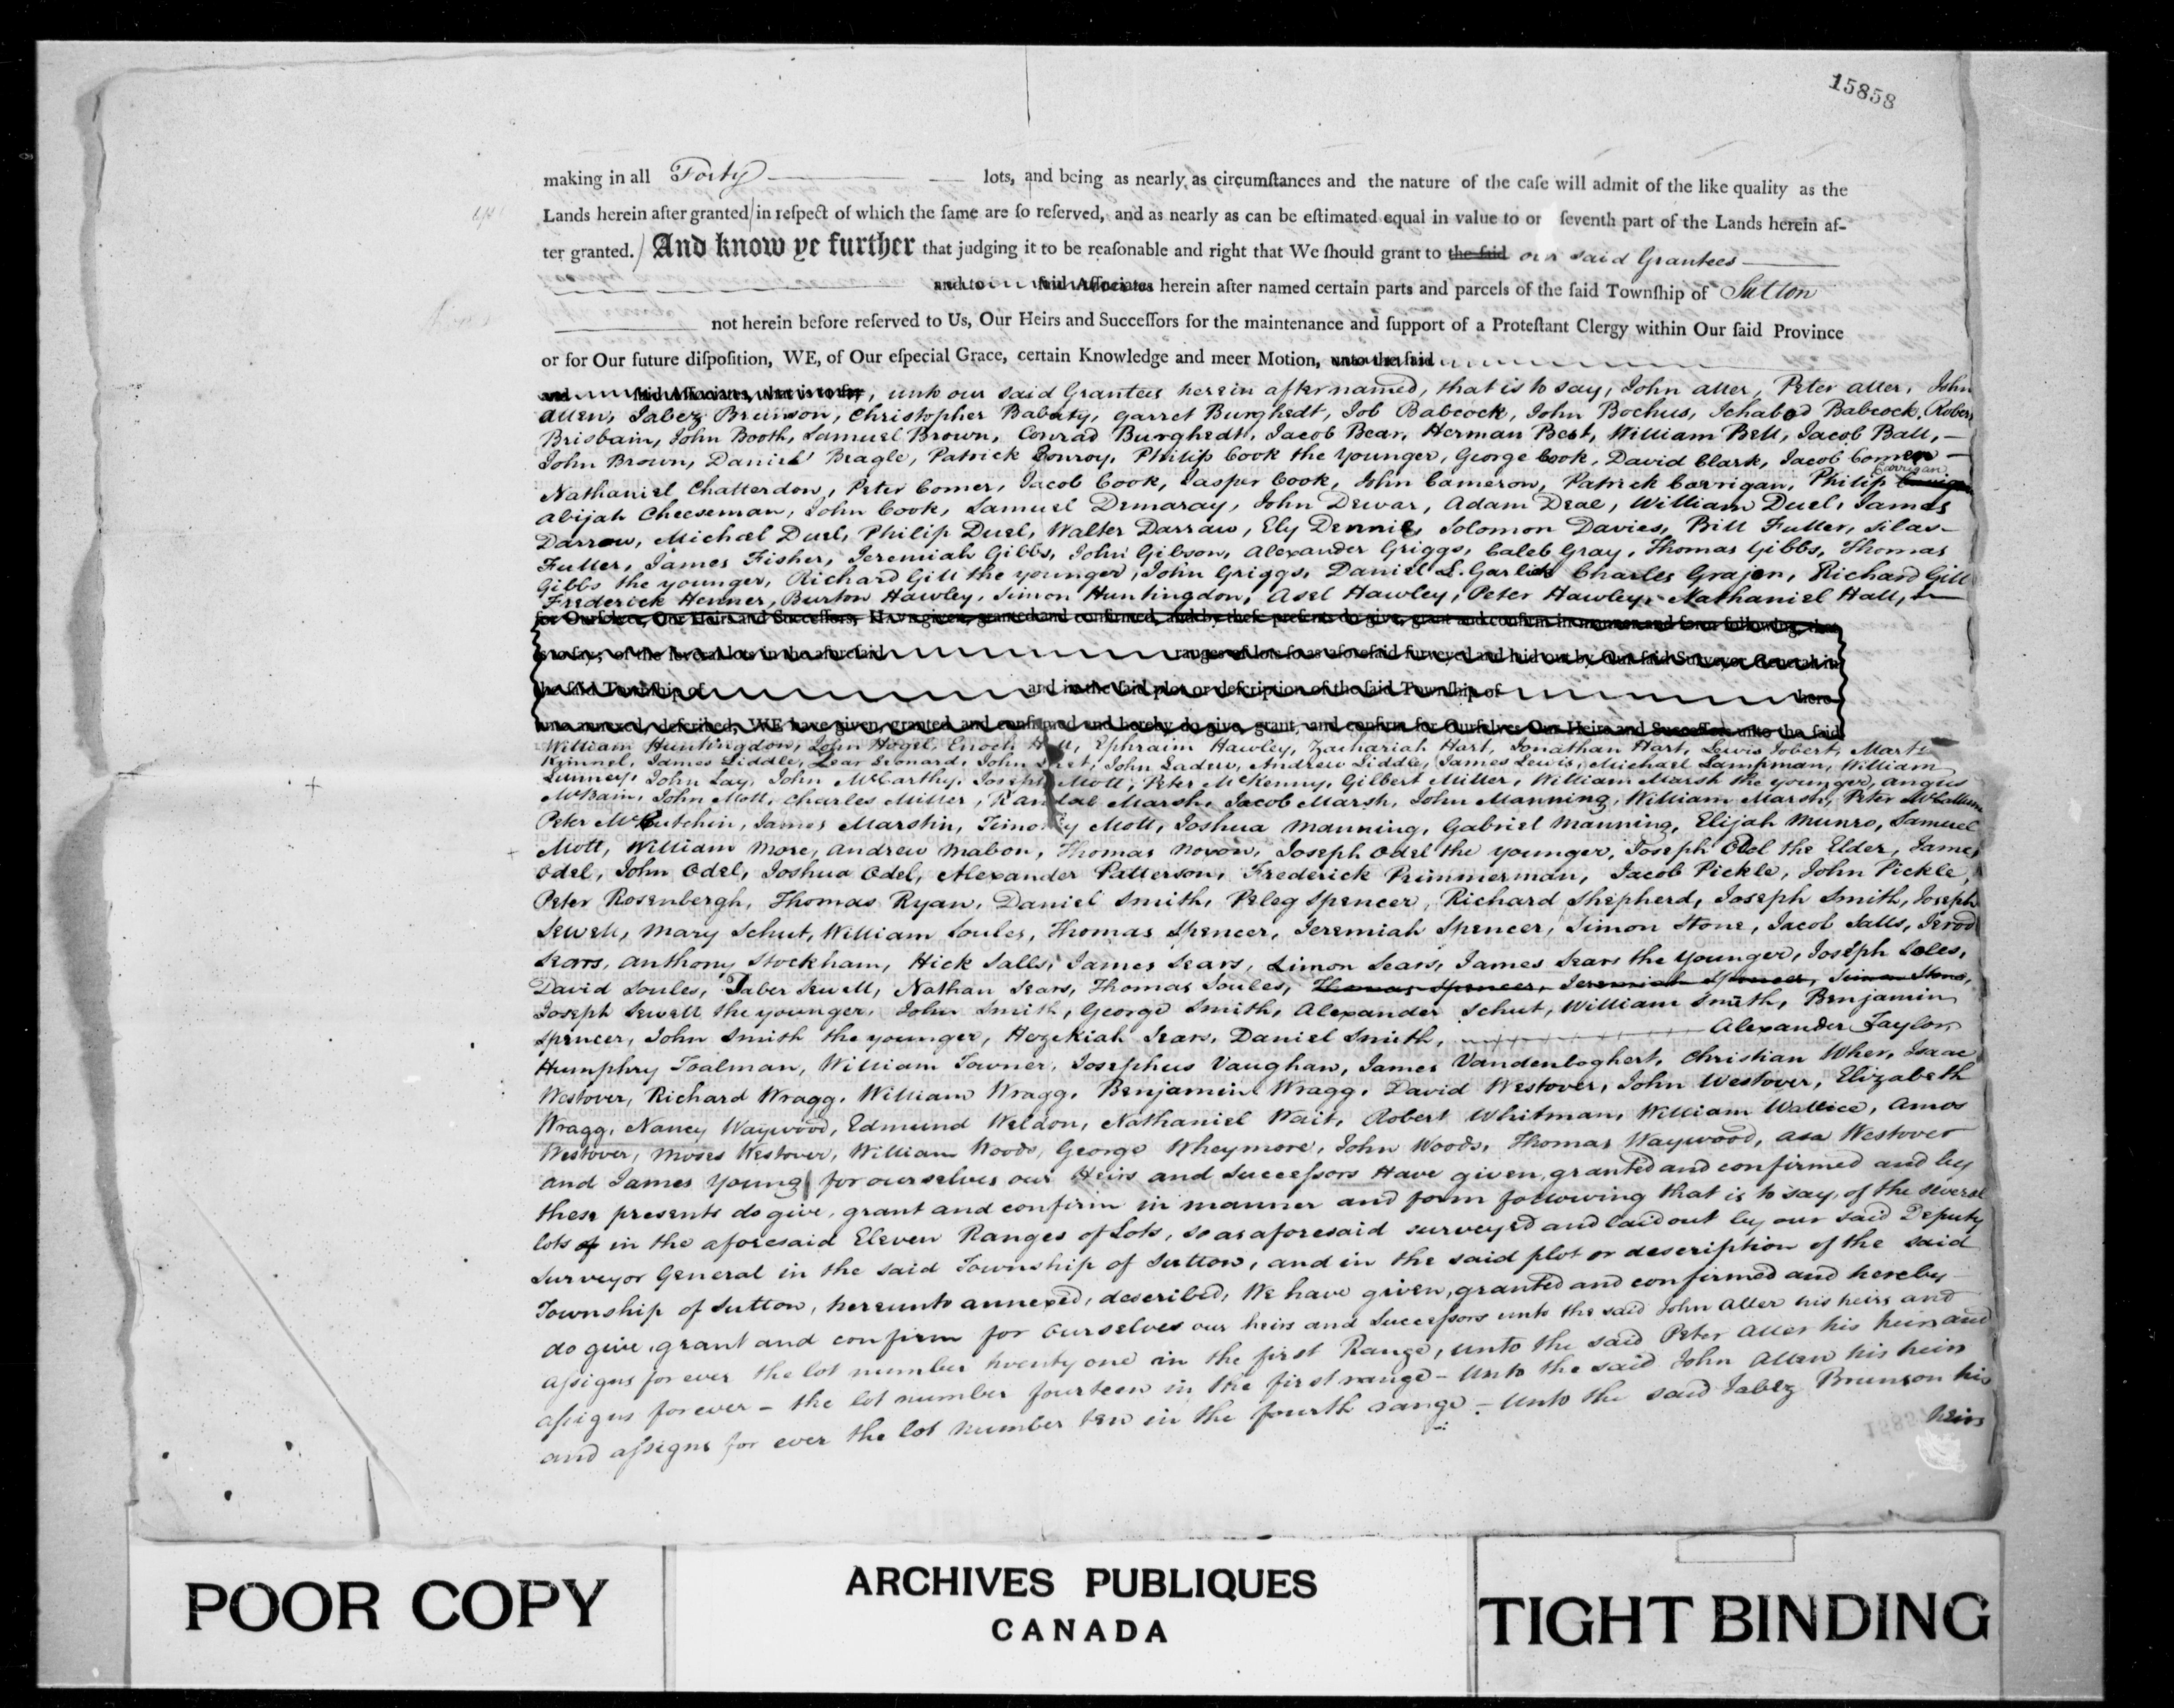 15858
making in all Forty lots, and being as nearly as circumſtances and the nature of the caſe will admit of the like quality as the
Lands herein after granted in reſpect of which the ſame are ſo reſerved, and as nearly as can be eſtimated equal in value to or ſeventh part of the Lands herein af-
ter granted. And know ye further that judging it to be reaſonable and right that We ſhould grant to the ſaid our said Grantees
and to ſaid Aſſociates herein after named certain parts and parcels of the ſaid Townſhip of Sutton
not herein before reſerved to Us, Our Heirs and Succeſſors for the maintenance and ſupport of a Proteſtant Clergy within Our ſaid Province
or for Our future diſpoſition, WE, of Our eſpecial Grace, certain Knowledge and meer Motion, unto the ſaid
and ſaid Aſſociates, that is to ſay, unto our said Grantees herein after named, that is to say, John aller, Peter aller, John
allen, Jabez Brunson, Christopher Babaty, garret Burghedt, Job Babcock, John Bochus, Ichabod Babcock, Robert
Brisbain, John Booth, Samuel Brown, Conrad Burghedt, Jacob Bear, Herman Best, William Bell, Jacob Ball,
John Brown, Daniel Beagle, Patrick Conroy, Philip Cook the younger, George Cook, David Clark, Jacob Comer
Nathaniel Chatterdon, Peter Comer, Jacob Cook, Jasper Cook, John Cameron, Patrick Carrigan, Philip Carrigan
abijah Cheeseman, John Cook, Samuel Demaray, John Dewar, Adam Deal, William Duel, James
Darrow, Michael Duel, Philip Duel, Walter Darraw, Ely Dennie, Solomon Davies, Bill Fuller, Silas
Fuller, James Fisher, Jeremiah Gibbs, John Gibson, Alexander Griggs, Caleb Gray, Thomas Gibbs, Thomas
Gibbs the younger, Richard Gill the younger, John Griggs, Daniel L. Garlick Charles Grajon, Richard Gill
Frederick Henner, Burton Hawley, Simon Huntingdon, Asel Hawley, Peter Hawley, Nathaniel Hall,
for Ourſelves, Our Heirs and Succeſſors, Have given, granted and confirmed, and by theſe preſents do give, grant and confirm in manner and form following, that
is to ſay; of the ſeveral lots in the aforeſaid ranges of lots ſo as aforeſaid ſurveyed and laid out by Our ſaid Surveyor General in
the ſaid Townſhip of and in the ſaid plot or deſcription of the ſaid Townſhip of here-
unto annexed, deſcribed, WE have given, granted and confirmed and hereby do give, grant, and confirm for Ourſelves Our Heirs and Succeſſors unto the ſaid
William Huntingdon, John Hogel, Enoch Ephraim Hawley, Zachariah Hart, Jonathan Hart, Lewis Jobert, Martin
Kimmel, James Liddle, Lear Leonard, John John Ladew, Andrew Liddle, James Lewis, Michael Lampman, William
Lunney, John Lay, John McCarthy, Joseph Mott, Peter McKenny, Gilbert Miller, William Marsh the younger, angus
McBain, John Mott, Charles Miller, Randal Marsh, Jacob Marsh, John Manning, William Marsh, Peter McCallum
Peter McCutchin, James Marstin, Timothy Mott, Joshua Manning, Gabriel Manning, Elijah Munro, Samuel
Mott, William More, Andrew Mabon, Thomas Noxon, Joseph Odel the younger, Joseph Odel the Elder, James
Odel, John Odel, Joshua Odel, Alexander Patterson, Frederick Primmerman, Jacob Pickle, John Pickle,
Peter Rosenbergh, Thomas Ryan, Daniel Smith, Peleg Spencer, Richard Shepherd, Joseph Smith, Joseph
Sewell, Mary Schut, William Soules, Thomas Spencer, Jeremiah Spencer, Simon Stone, Jacob Salls, Jerod
Sears, Anthony Stockham, Hick Salls, James Sears, Simon Sears, James Sears the younger, Joseph Soles,
David Soules, Taber Sewell, Nathan Sears, Thomas Soules, Thomas Spencer, Jeremiah Spencer, Simon Stone,
Joseph Sewell the younger, John Smith, George Smith, Alexander Schut, William Smith, Benjamin
Spencer, John Smith the younger, Hezekiah Sears, Daniel Smith, Alexander Taylor
Humphry Toalman, William Towner, Josephus Vaughan, James Vandenboghert, Christian Wher, Isaac
Westover, Richard Wragg, William Wragg, Benjamin Wragg, David Westover, John Westover, Elizabeth
Wragg, Nancy Waywood, Edmund Weldon, Nathaniel Wait, Robert Whitman, William Wallice, Amos
Westover, Moses Westover, William Woods, George Wheymore, John Woods, Thomas Waywood, Asa Westover
and James Young for ourselves our Heirs and Successors Have given, granted and confirmed and by
these presents do give, grant and confirm in manner and form following that is to say, of the several
lots of in the aforesaid Eleven Ranges of Lots, so as aforesaid surveyed and laid out by our said Deputy
Surveyor General in the said Township of Sutton, and in the said plot or description of the said
Township of Sutton, hereunto annexed, described, We have given, granted and confirmed and hereby
do give, grant and confirm for Ourselves our heirs and Successors unto the said John Aller his heirs and
assigns for ever the lot number twenty one in the first Range, unto the said Peter Aller his heirs and
assigns forever - the lot number fourteen in the first range - Unto the said John Allen his heirs
and assigns for ever the lot number ten in the fourth range - Unto the said Jabez Brunson his
heirs
POOR COPY
ARCHIVES PUBLIQUES
CANADA
TIGHT BINDING